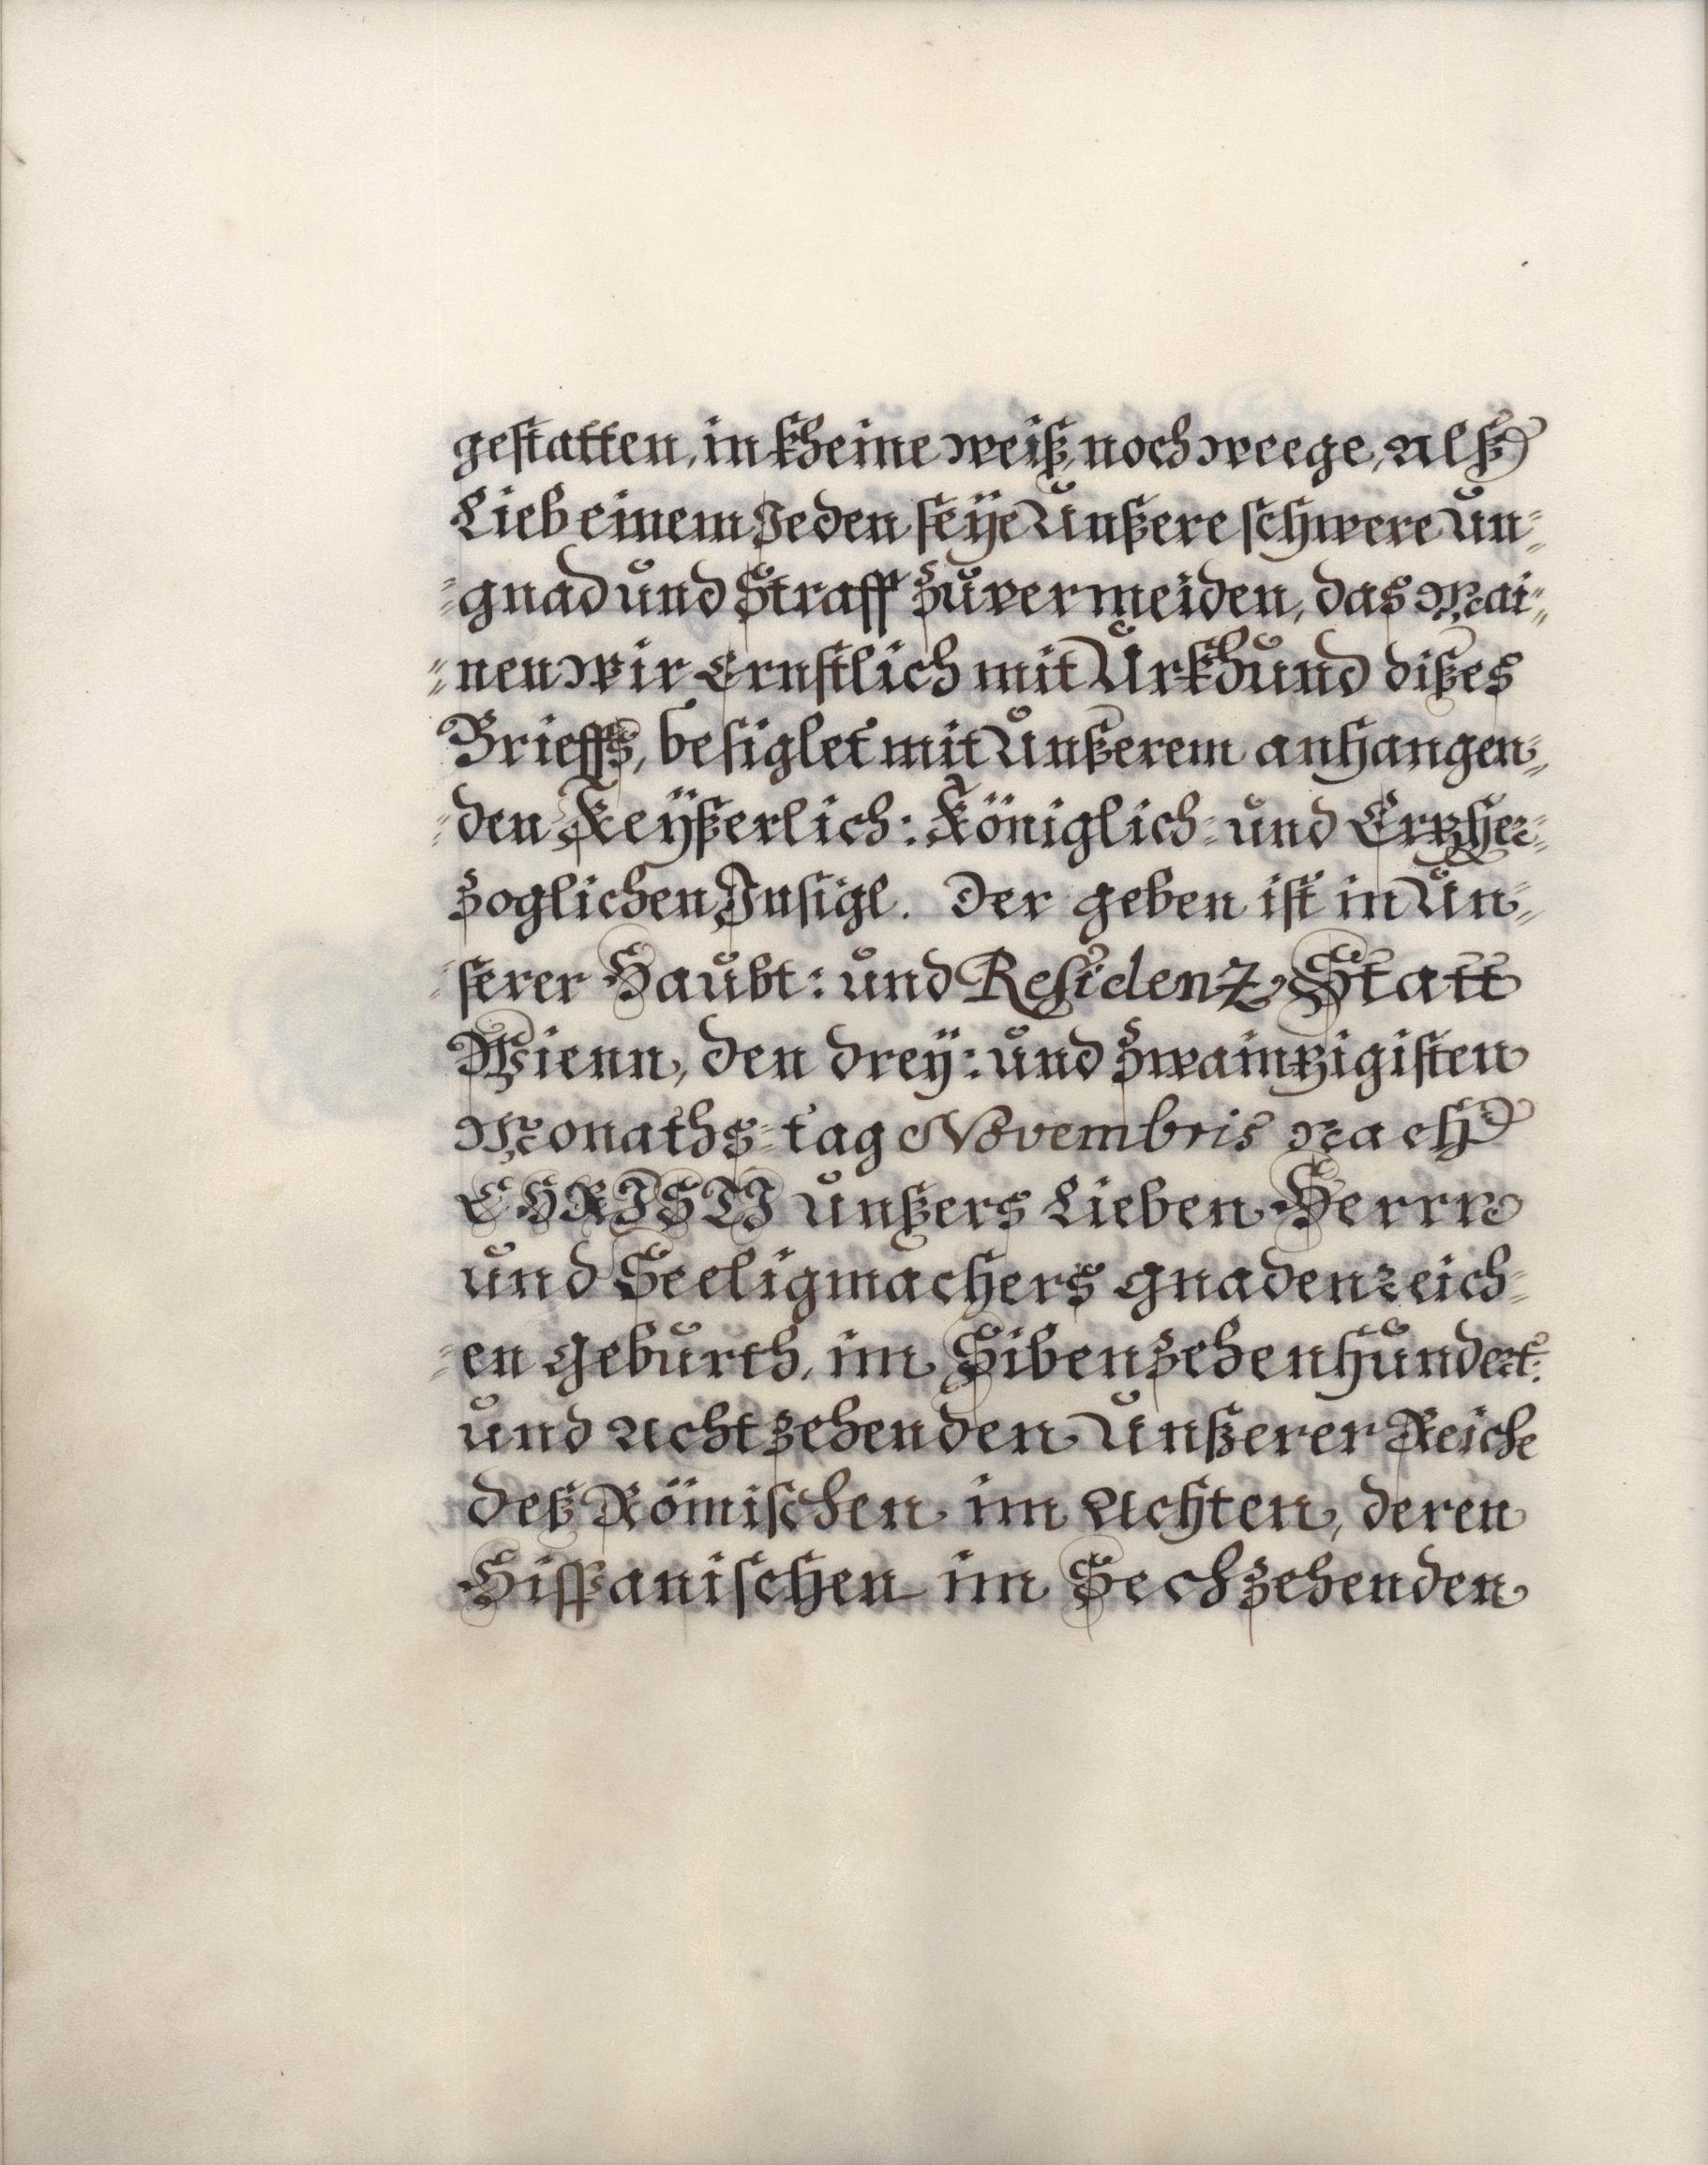 gestatten, in kheine weiß, noch weege, Alß
Lieb einem Jeden seÿe Unßere schwere Un=
=gnad und Straff zuvermeiden, das Mai=
=nen wir Ernstlich mit Urkhund dißes
Brieffs, besiglet mit Unßerem anhangen=
=den Keÿßerlich: Königlich= und Ertzher=
zoglichen Insigl. Der geben ist in Un=
=serer Haubt: und Residenz Statt
Wienn, den dreÿ: und zwaintzigisten
Monaths=tag Novembris Nach
CHRISTI unßers Lieben Herrn
und Seeligmachers gnadenreich=
=en geburth, im Sibenzehenhundert:
und Achtzehenden Unßerer Reiche
deß Römischen im Achten, deren
Hispanischen im Sechzehenden